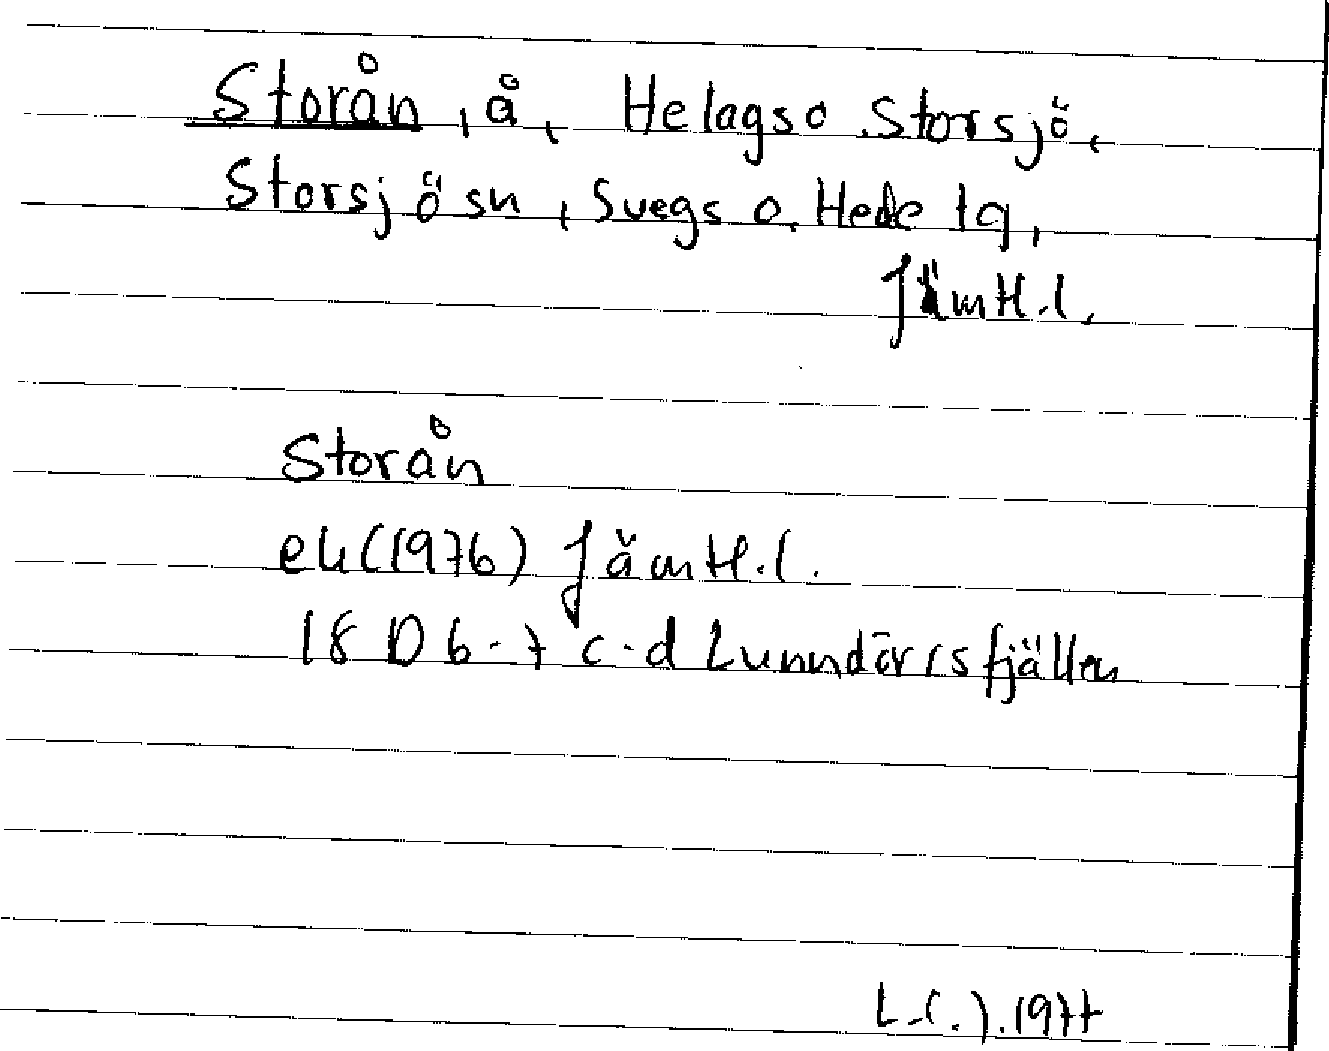 Storån, å, Helags o. Storsjö,
Storsjö sn, Svegs o. Hede tg,
Jämtl. l.
Storån
ek (1976) Jämtl. l.
18 D 6-7 c-d Lunndörrsfjällen
1977